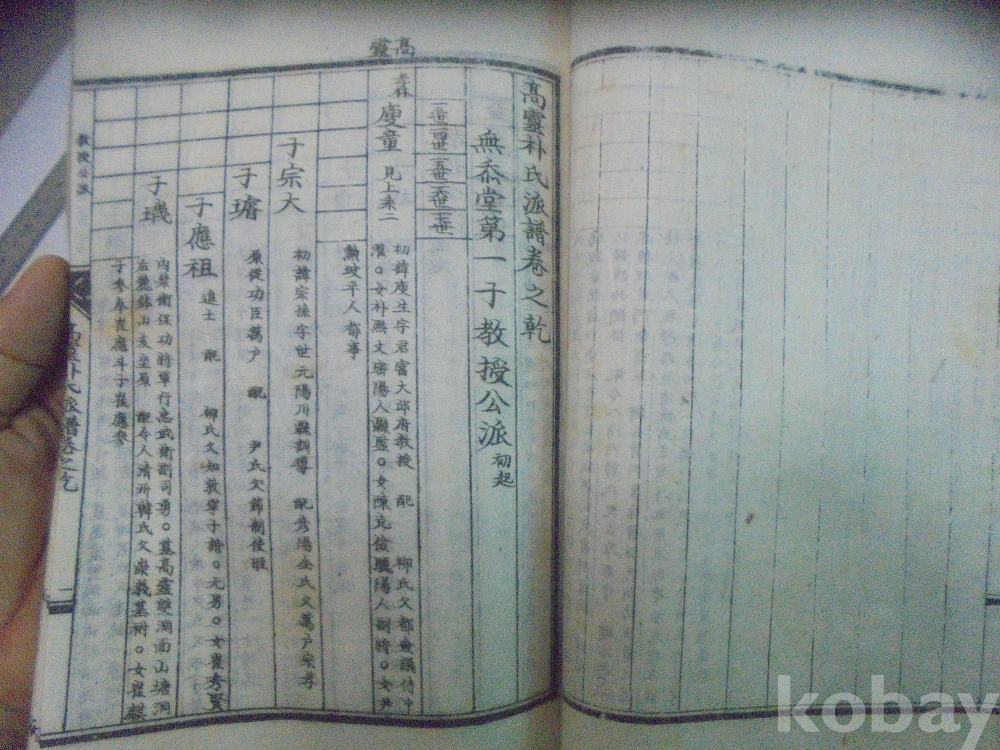 高靈
高靈朴氏派譜卷之乾
無忝堂第一子教授公派 初起
三世
四世
五世
六世
七世
森
慶童 見上朱二
初諱庚生字君富大邱府教授 配 柳氏父都僉議侍中
濯○女朴熙文密陽人縣監○女陳克儉驪陽人副將○女尹
勲坡平人都事
子宗大
初諱宗孫字世元陽川縣訓導 配彦陽金氏父萬户宗孝
子璿
原從功臣萬户 配 尹氏父節制使
子應祖
進士 配 柳氏父知敦寧子諧○无男○女崔秀賢
子璣
内禁衛保功將軍行忠武衛副司勇○墓高靈雙洞面山塘洞
后麓 山亥坐原 配令人清州韓氏父 義墓祔○女崔
子參奉崔應斗子崔應參
教授公派
高靈朴氏派譜卷之乾
一
kobay